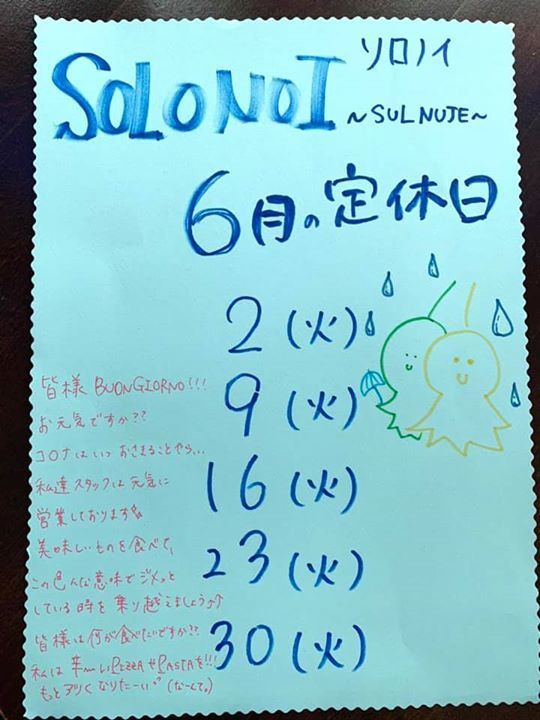 SOLO NOI ソロノイ
~SUL NUJE~
6月の定休日
2(火)
9(火)
16(火)
23(火)
30(火)
皆様 BUONGIORNO!!!
お元気ですか??
コロナはいつおさまることやら…
私達スタッフは元気に
営業しております
美味しいものを食べて、
この色んな意味でジメッと
している時を乗り越えましょう♪♪
皆様は何が食べたいですか??
私は辛〜いPIZZAやPASTAを!!!
もっとアツくなりたーい (なーんて。)